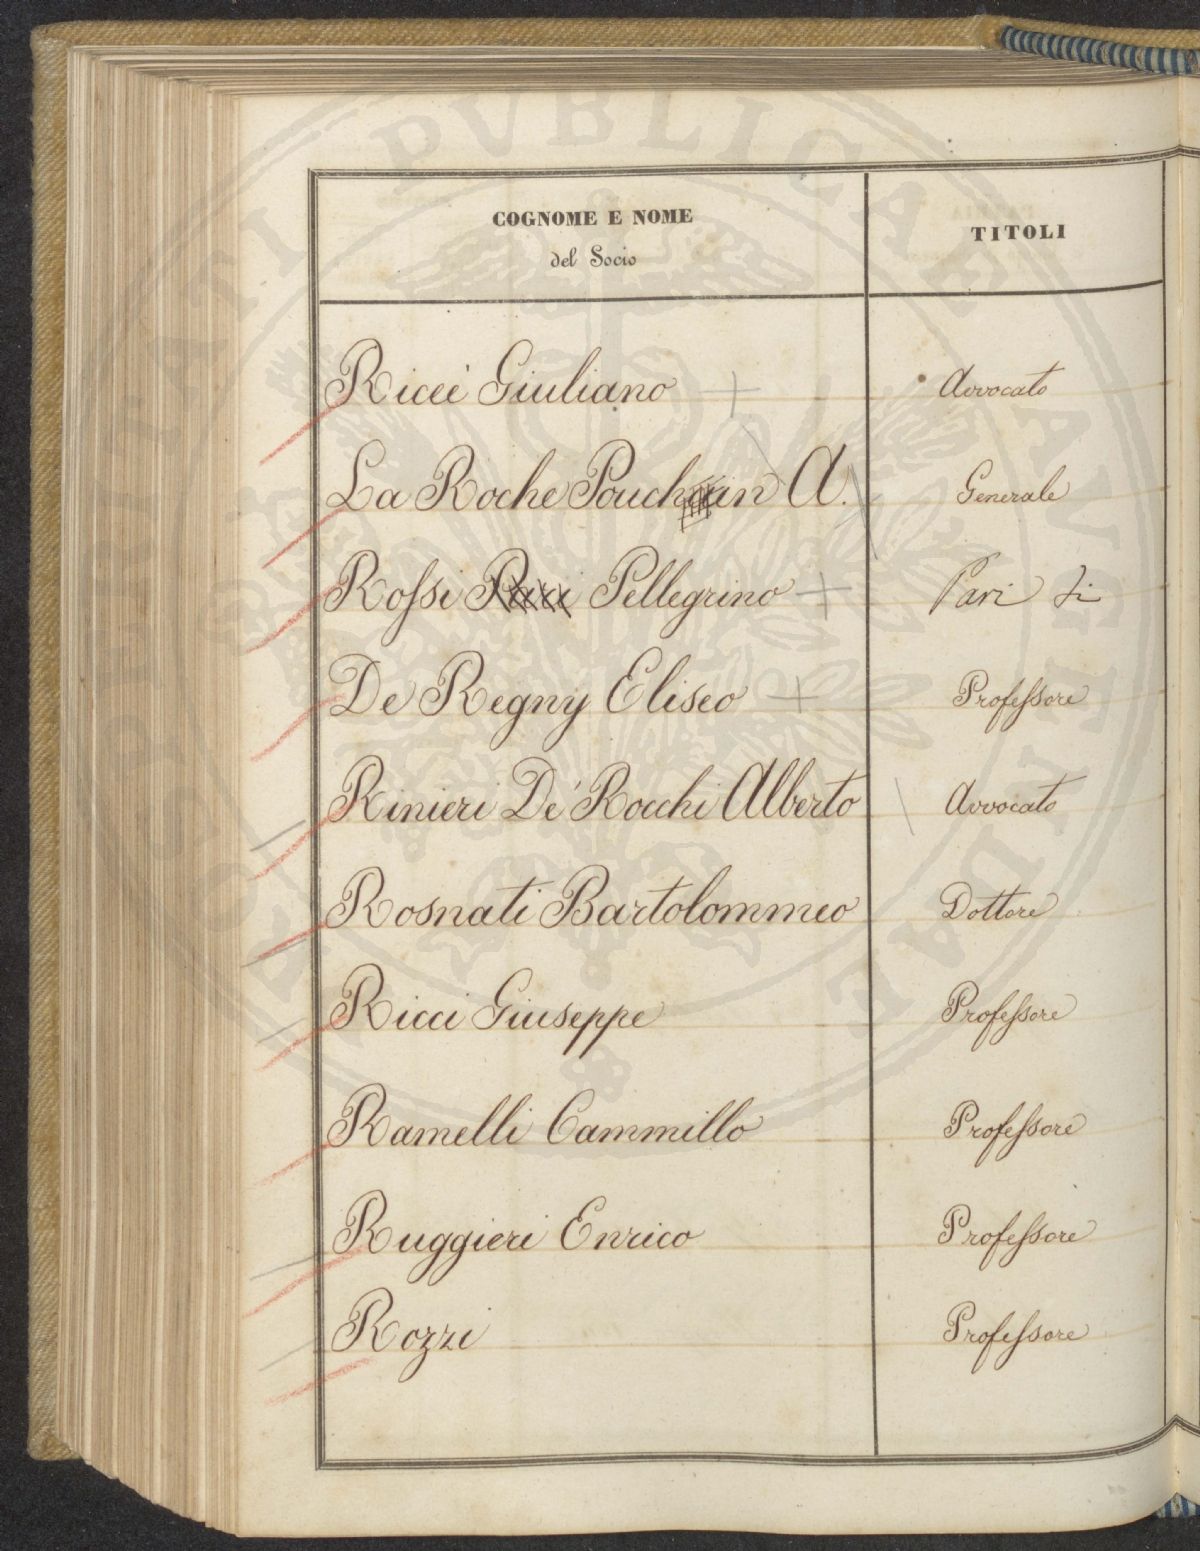 COGNOME E NOME
del Socio
TITOLI
Ricci Giuliano Avvocato
La Roche Pouchin A. Generale
Rossi Pellegrino Pari di
De Regny Eliseo Professore
Rinieri De' Rocchi Alberto Avvocato
Rosnati Bartolommeo Dottore
Ricci Giuseppe Professore
Ramelli Cammillo Professore
Ruggieri Enrico Professore
Rozzi Professore